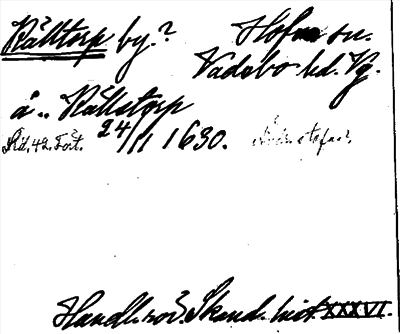 Rålltorp by.? Hofva sn.
Vadsbo hd. Vg.
å.. Rållstorp
Sid. 42. Fört. 24/11 1630.
Handl. rör. Skand. hist. XXXVI.